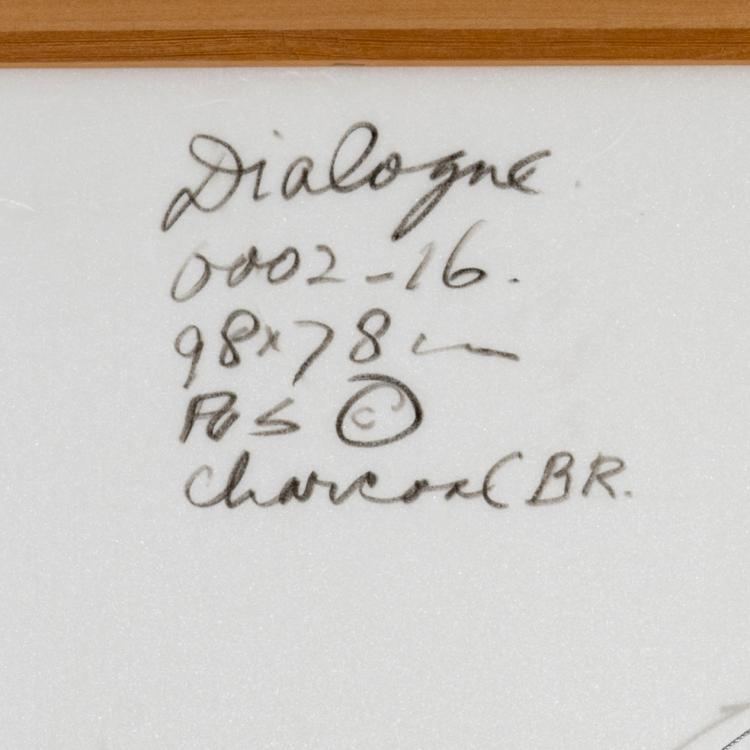 Dialogue.
0002-16.
98x78 cm
©
charcoal BR.